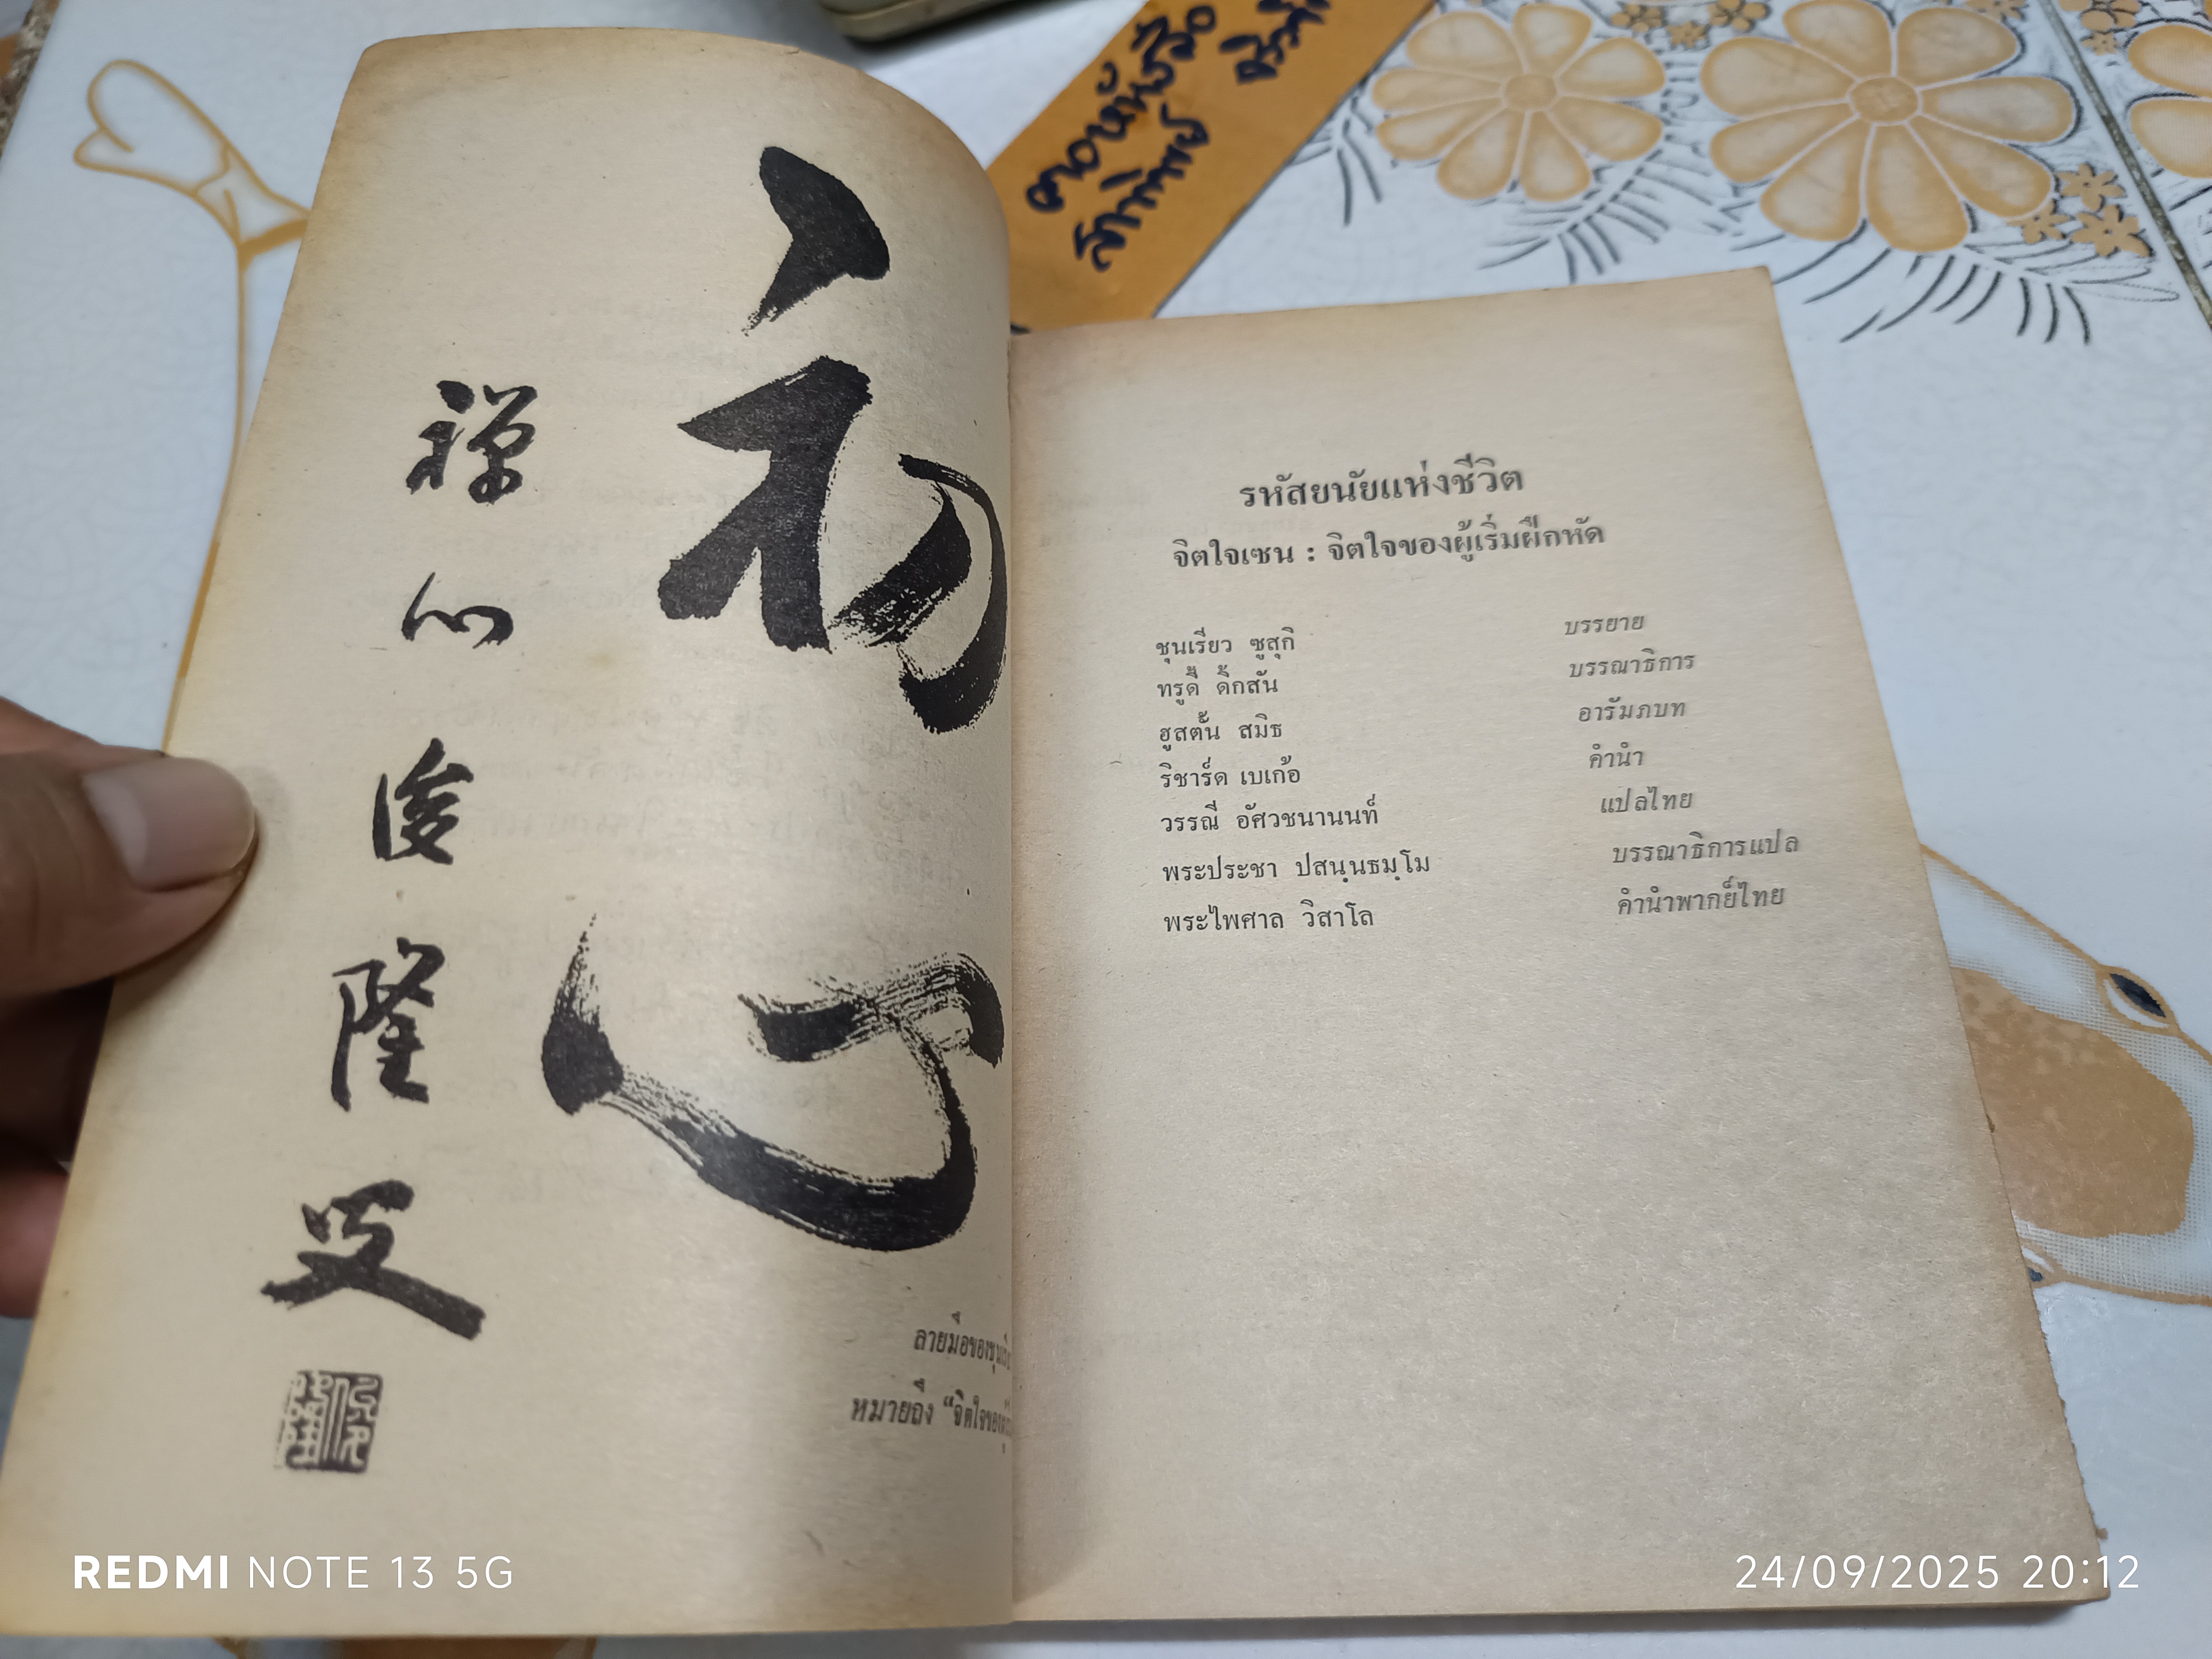 初心
禅心 俊隆叟
ลายมือของชุนเรียว
หมายถึง “จิตใจของผู้เริ่ม
รหัสยนัยแห่งชีวิต
จิตใจเซน : จิตใจของผู้เริ่มฝึกหัด
ชุนเรียว ซูสุกิ บรรยาย
ทรูดี้ ดิ๊กสัน บรรณาธิการ
ฮูสตั้น สมิธ อารัมภบท
ริชาร์ด เบเก้อ คำนำ
วรรณี อัศวชนานนท์ แปลไทย
พระประชา ปสนฺนธมฺโม บรรณาธิการแปล
พระไพศาล วิสาโล คำนำพากย์ไทย
REDMI NOTE 13 5G
24/09/2025 20:12